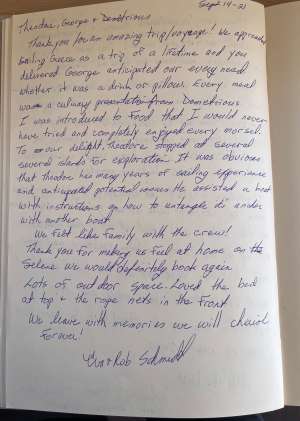 Sept 14-21
Theodore, George + Demetrious
Thank you for amazing trip/voyage! We approached
sailing Greece as a trip of a lifetime and you
delivered George anticipated our every need
whether it was a drink or pillow. Every meal
was a culinary presentation from Demetrious
I was introduced to food that I would never
have tried and completely enjoyed every morsel.
To our delight, Theodore stopped at several
several islands for exploration. It was obvious
that Theodore has many years of sailing experience
and anticipated potential issues He assisted a boat
with instructions on how to untangle anchor
with another boat.
We felt like Family with the crew!
Thank you for making us feel at home on the
Selene We would definitely book again
Lots of outdoor space. Loved the bed
at top + the rope nets in the Front
We leave with memories we will cherish
Forever!
+ Rob Schmidt